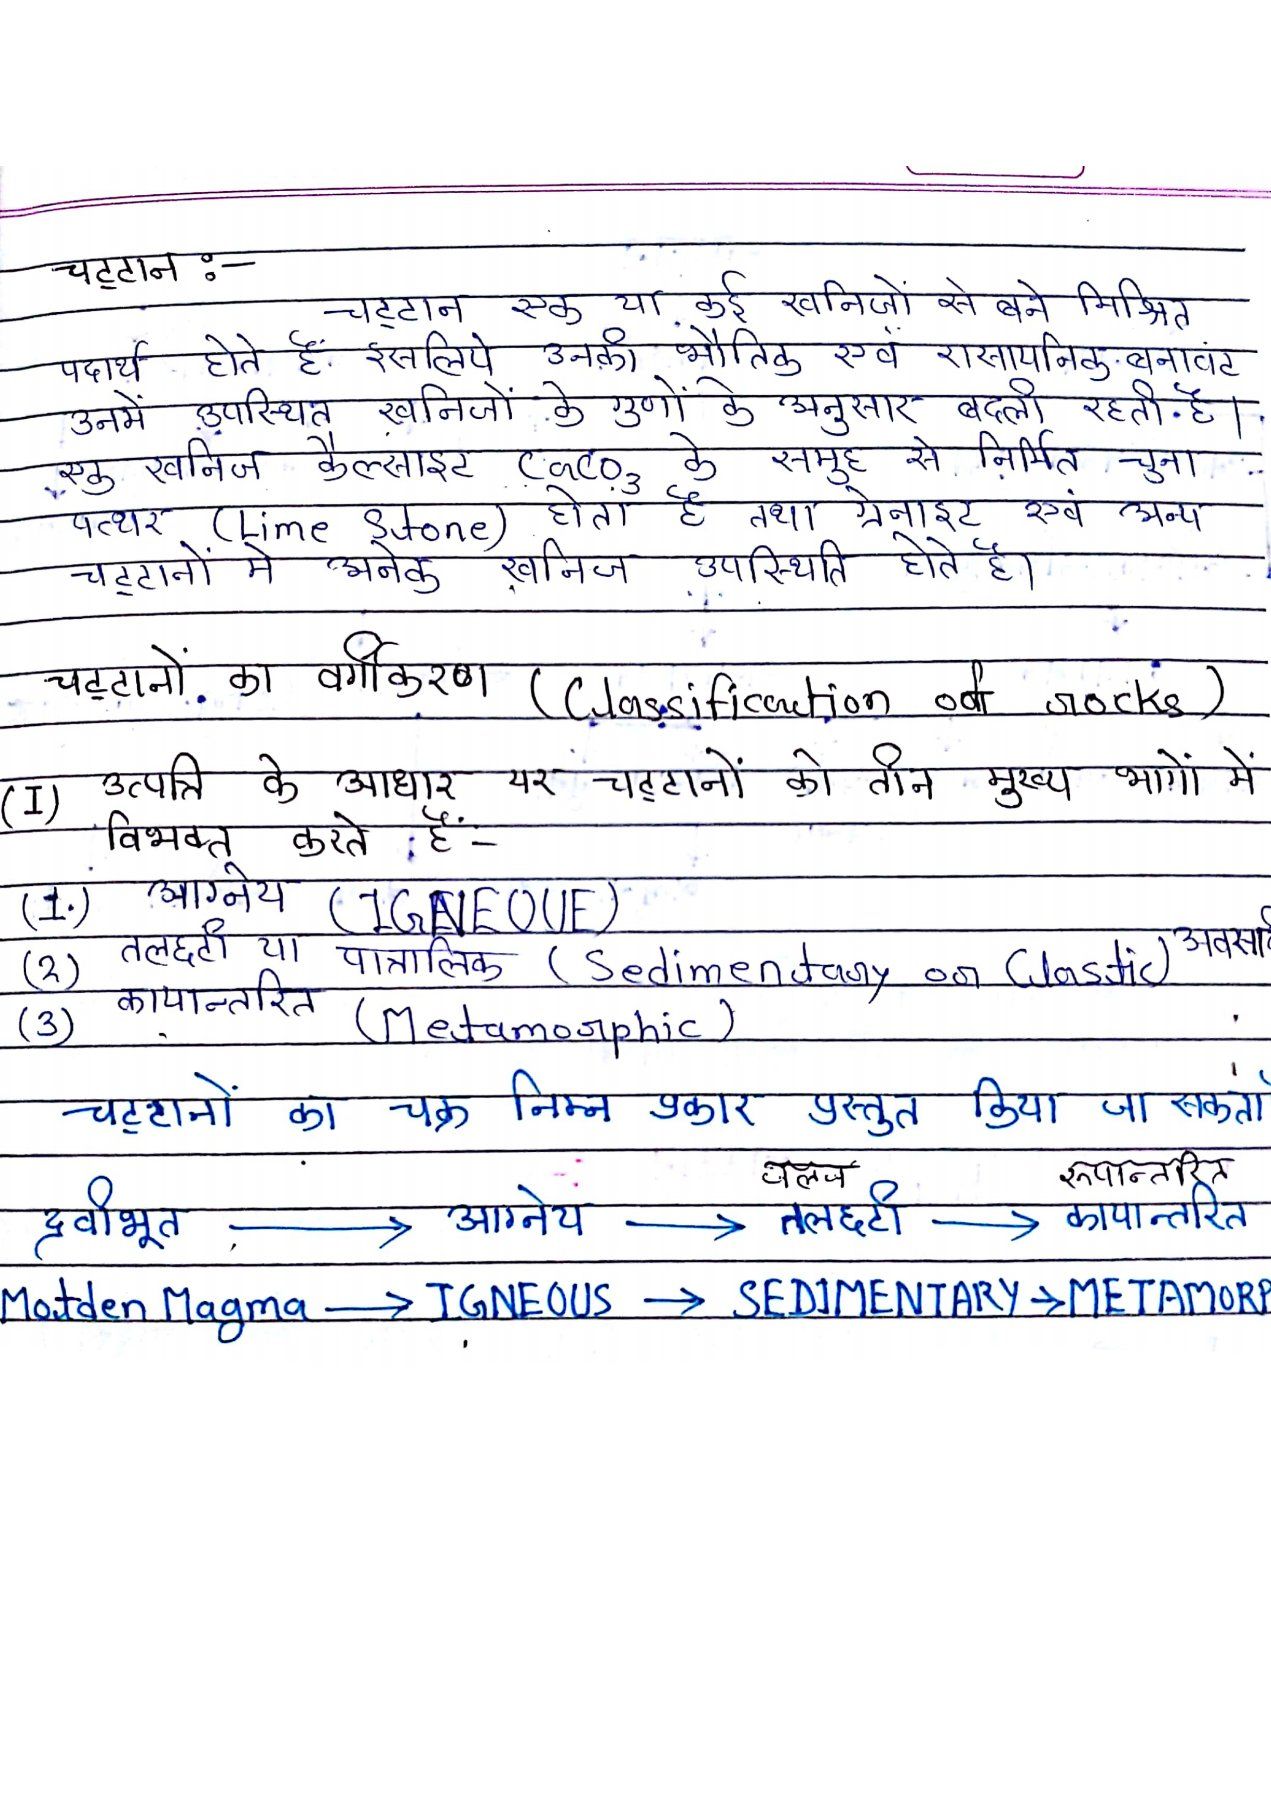 चट्टान :-
चट्टान एक या कई खनिजों से बने मिश्रित
पदार्थ होते हैं. इसलिये उनकी भौतिक एवं रासायनिक बनावट
उनमें उपस्थित खनिजों के गुणों के अनुसार बदली रहती है।
एक खनिज कैल्साइट CaCO3 के समुह से निर्मित चुना
पत्थर (Lime Stone) होता है तथा ग्रेनाइट एवं अन्य
चट्टानों मे अनेक खनिज उपस्थिति होते है।
चट्टानों का वर्गीकरण (Classification of rocks)
(I) उत्पत्ति के आधार पर चट्टानों को तीन मुख्य भागों में
विभक्त करते हैं:-
(1.) आग्नेय (IGNEOUE)
(2) तलछटी या पात्रालिक (Sedimentary or Clastic) अवसादी
(3) कायान्तरित (Metamorphic)
चट्टानों का चक्र निम्न प्रकार प्रस्तुत किया जा सकता
जलज रूपान्तरित
द्रवीभूत → आग्नेय → तलछटी → कायान्तरित
Matden Magma → IGNEOUS → SEDIMENTARY → METAMORP